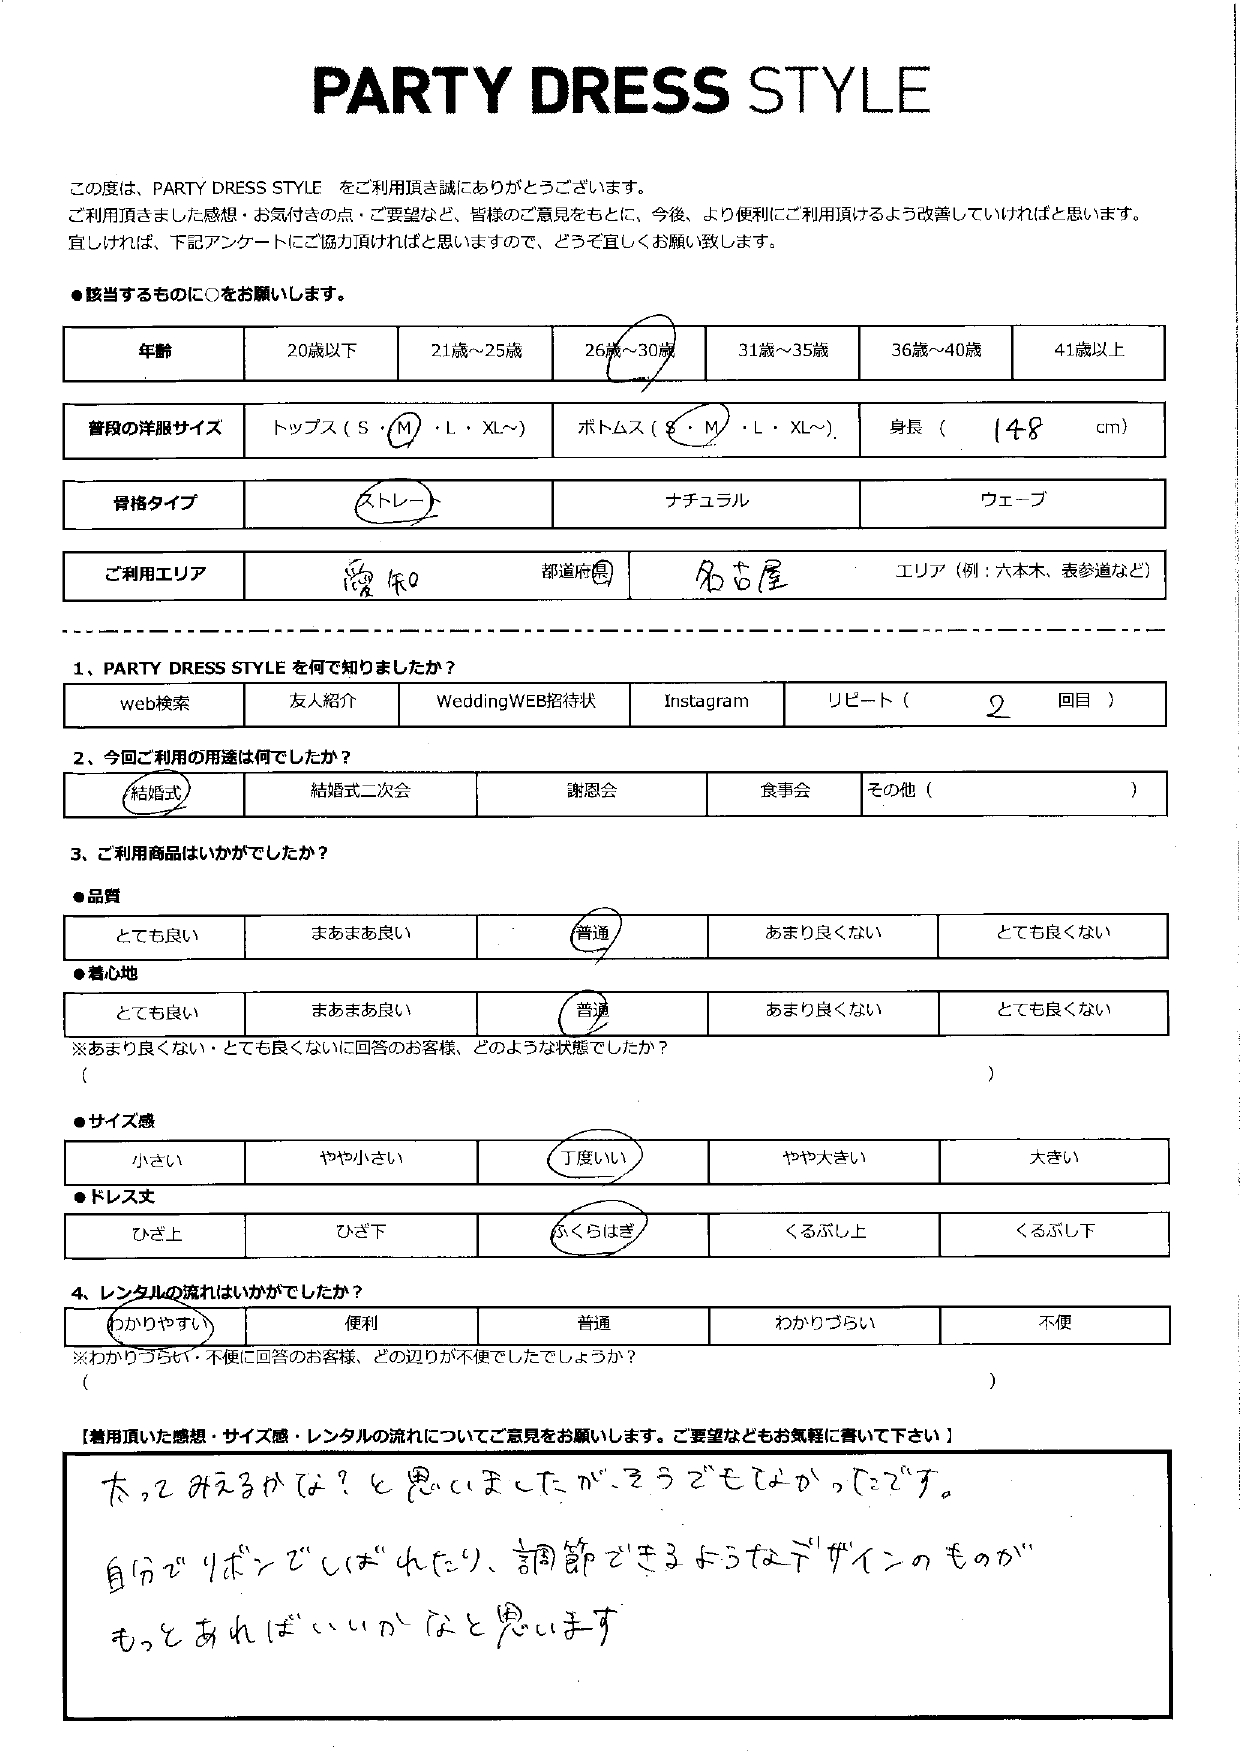 PARTY DRESS STYLE
この度は、PARTY DRESS STYLE　をご利用頂き誠にありがとうございます。
ご利用頂きました感想・お気付きの点・ご要望など、皆様のご意見をもとに、今後、より便利にご利用頂けるよう改善していければと思います。
宜しければ、下記アンケートにご協力頂ければと思いますので、どうぞ宜しくお願い致します。
●該当するものに○をお願いします。
年齢 20歳以下 21歳～25歳 26歳～30歳 31歳～35歳 36歳～40歳 41歳以上
普段の洋服サイズ トップス ( S ・M ・L ・ XL～) ボトムス ( S ・ M ・L ・ XL～) 身長 ( 148 cm)
骨格タイプ ストレート ナチュラル ウェーブ
ご利用エリア 愛知 都道府県 名古屋 エリア（例：六本木、表参道など）
1、PARTY DRESS STYLE を何で知りましたか？
web検索 友人紹介 WeddingWEB招待状 Instagram リピート（ 2 回目 ）
2、今回ご利用の用途は何でしたか？
結婚式 結婚式二次会 謝恩会 食事会 その他（ ）
3、ご利用商品はいかがでしたか？
●品質
とても良い まあまあ良い 普通 あまり良くない とても良くない
●着心地
とても良い まあまあ良い 普通 あまり良くない とても良くない
※あまり良くない・とても良くないに回答のお客様、どのような状態でしたか？
（ ）
●サイズ感
小さい やや小さい 丁度いい やや大きい 大きい
●ドレス丈
ひざ上 ひざ下 ふくらはぎ くるぶし上 くるぶし下
4、レンタルの流れはいかがでしたか？
わかりやすい 便利 普通 わかりづらい 不便
※わかりづらい・不便に回答のお客様、どの辺りが不便でしたでしょうか？
（ ）
【着用頂いた感想・サイズ感・レンタルの流れについてご意見をお願いします。ご要望などもお気軽に書いて下さい】
太ってみえるかな？と思いましたが、そうでもなかったです。
自分でリボンでしばれたり、調節できるようなデザインのものが
もっとあればいいかなと思います